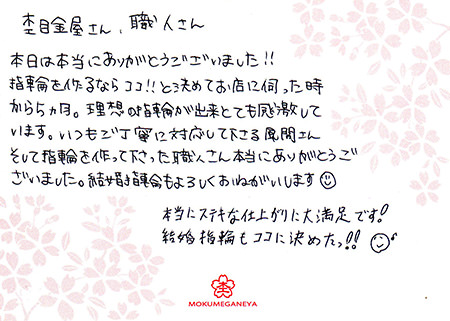 杢目金屋さん、職人さん
本日は本当にありがとうございました!!
指輪を作るならココ!!と決めてお店に伺った時
から5ヵ月。理想の指輪が出来とても感激して
います。いつもご丁寧に対応して下さる風間さん
そして指輪を作って下さった職人さん本当にありがとうご
ざいました。結婚指輪もよろしくおねがいします
本当にステキな仕上がりに大満足です!
結婚指輪もココに決めたっ!!
杢
MOKUMEGANEYA